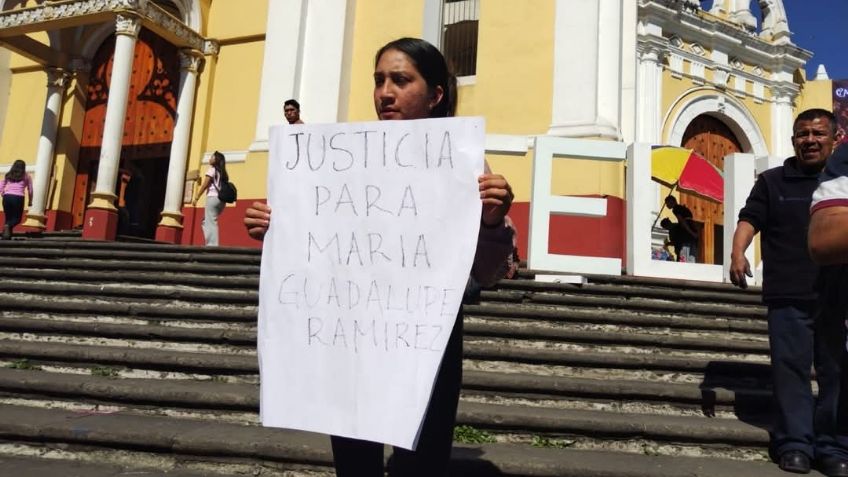 JUSTICIA
PARA
MARIA
GUADALUPE
RAMIREZ